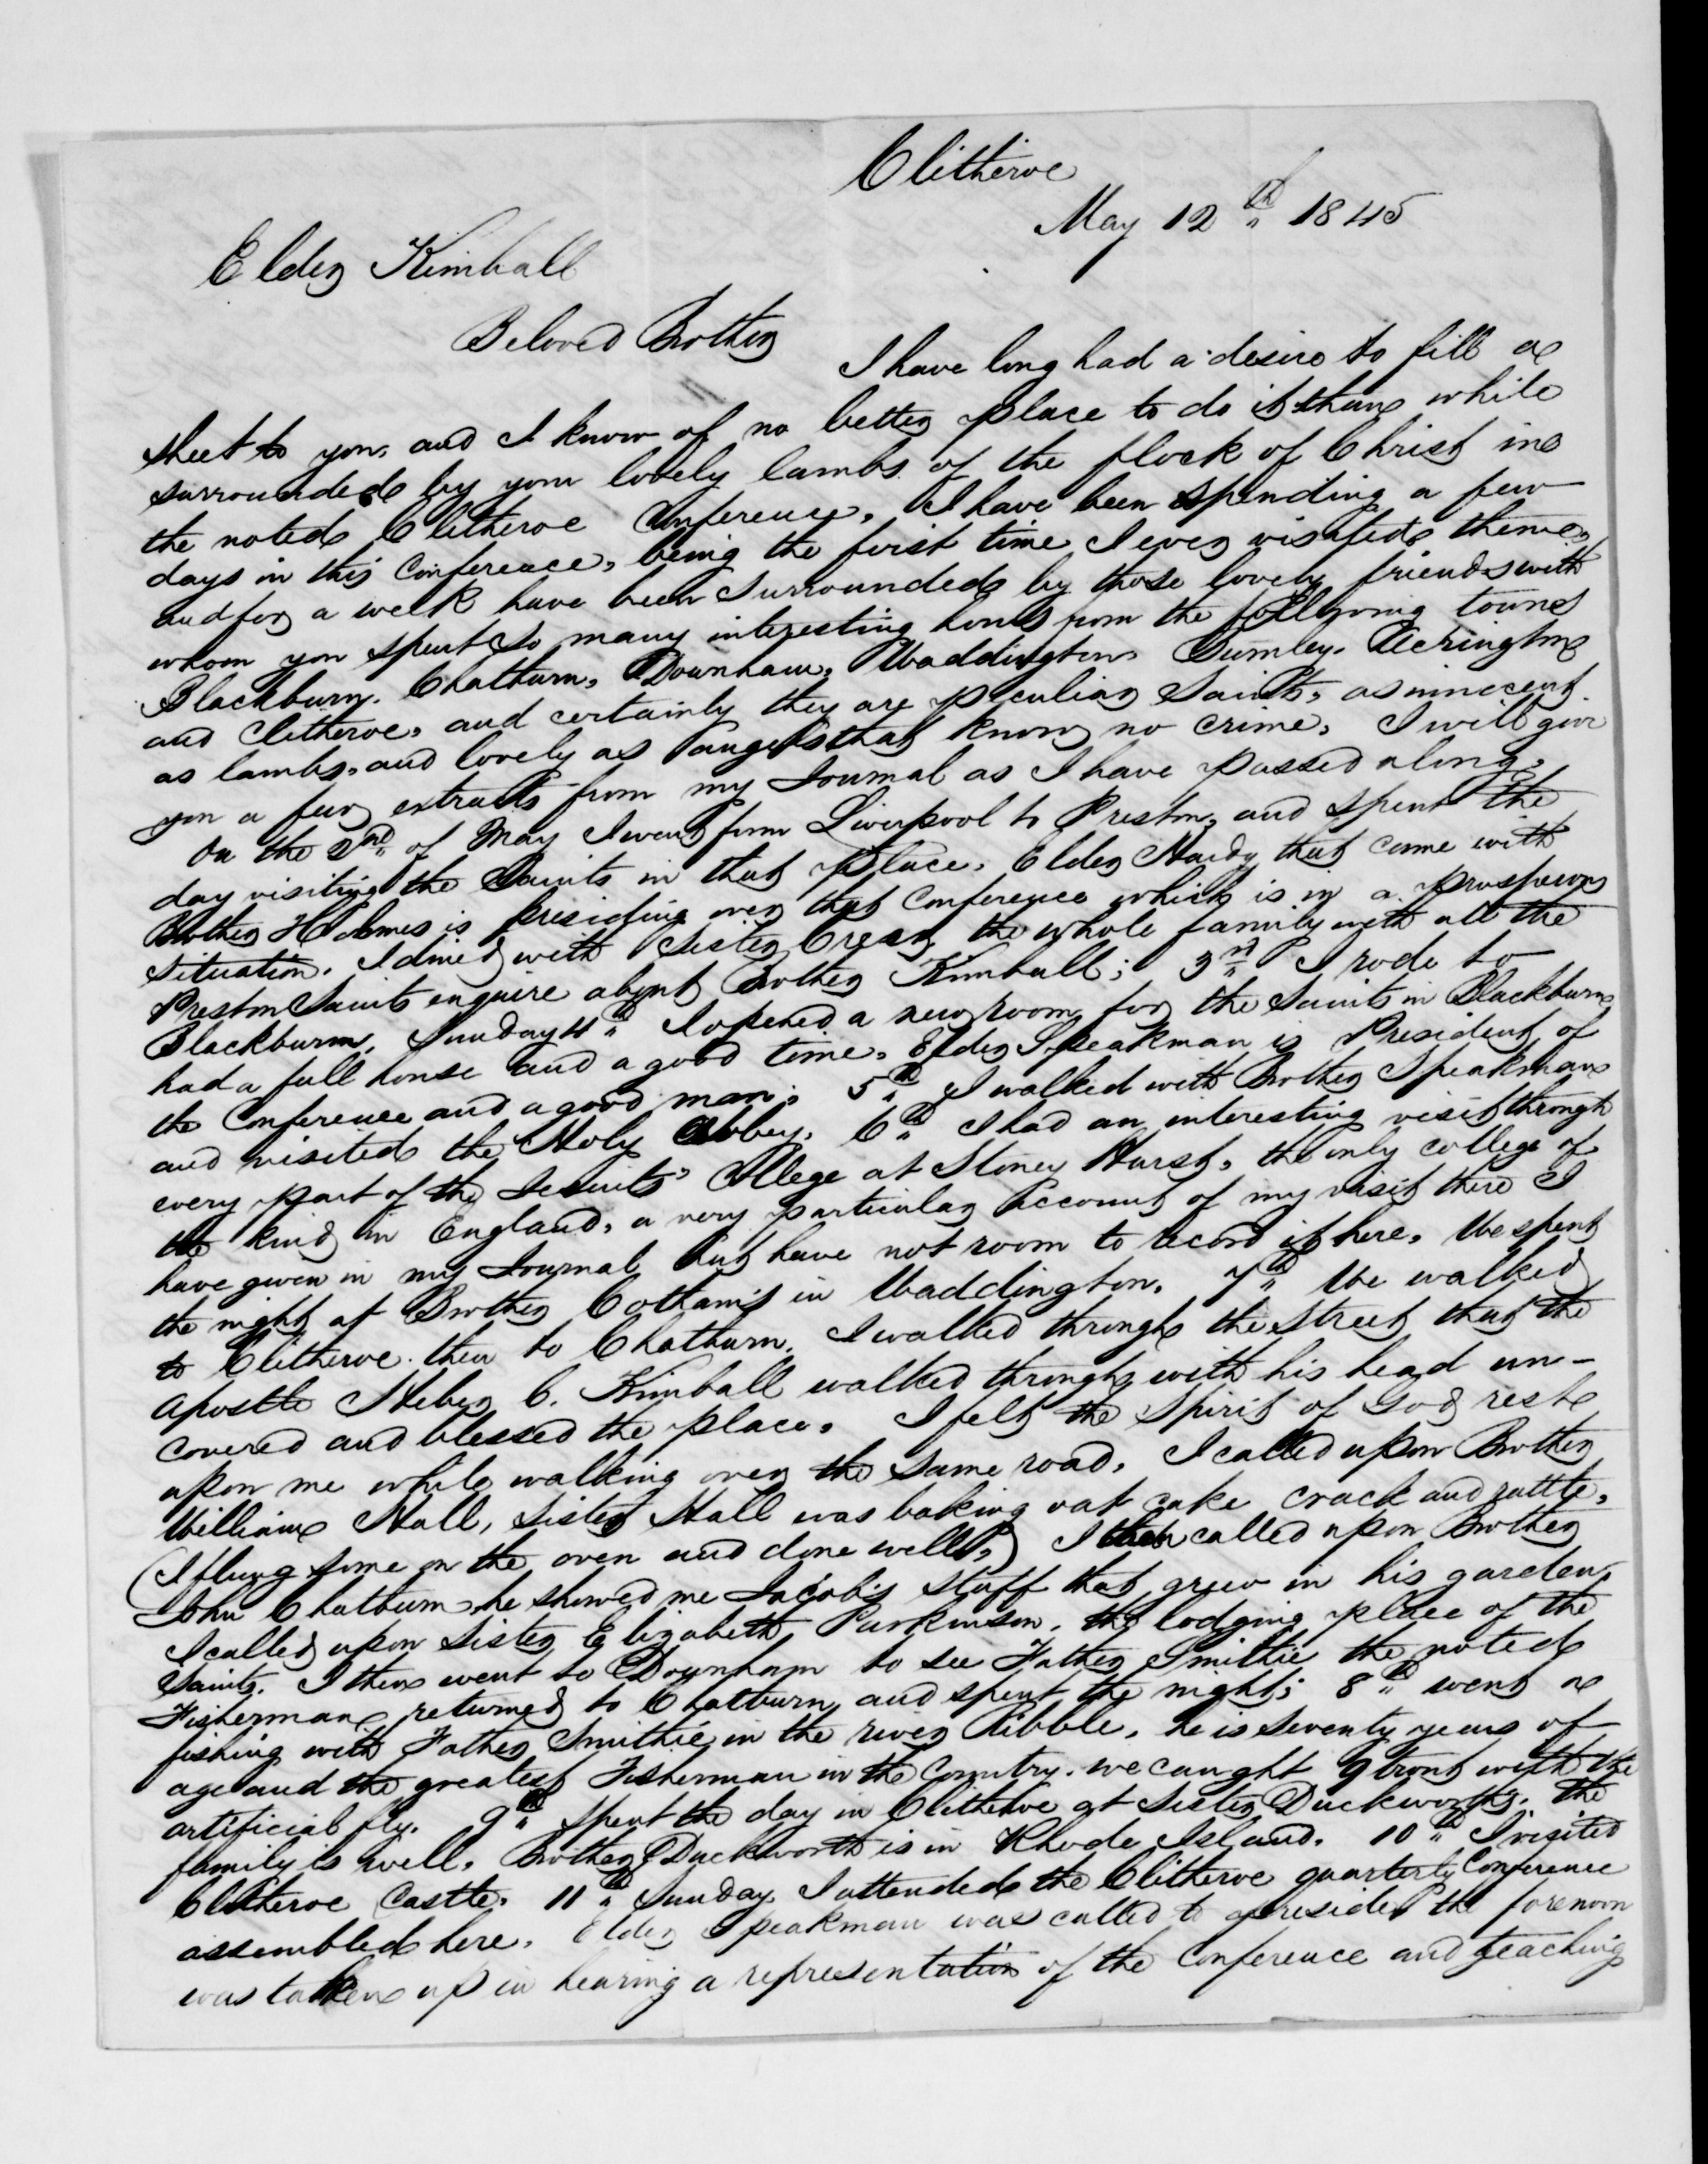 Clitheroe
May 12th 1845
Elder Kimball
Beloved Brother
I have long had a desire to fill a
sheet to you, and I know of no better place to do it than while
surrounded by your lovely lambs of the flock of Christ in
the noted Clitheroe Conference. I have been spending a few
days in this Conference, being the first time I ever visited them,
and for a week have been surrounded by those lovely friends with
whom you spent so many interesting hours from the following towns
Blackburn. Chatburn, Downham, Waddington. Burnley. Accrington
and Clitheroe, and certainly they are peculiar Saints, as innocent
as lambs, and lovely as angels that know no crime. I will give
you a few extracts from my Journal as I have passed along.
On the 2nd of May I went from Liverpool to Preston, and spent the
day visiting the Saints in that place. Elder Hardy that come with
Brother Holmes is presiding over that Conference which is in a prosperous
situation. I dined with Sister Creer, the whole family with all the
Preston Saints enquire about Brother Kimball; 3rd I rode to
Blackburn. Sunday 4th I opened a new room for the Saints in Blackburn
had a full house and a good time. Elder Speakman is President of
the Conference and a good man; 5th I walked with Brother Speakman
and visited the Holy Abbey. 6th I had an interesting visit through
every part of the Jesuits' College at Stoney Hurst, the only college of
the kind in England, a very particular account of my visit there I
have given in my Journal but have not room to record it here. We spent
the night at Brother Cottam's in Waddington. 7th We walked
to Clitheroe. then to Chatburn. I walked through the Street that the
Apostle Heber C. Kimball walked through with his head un-
covered and blessed the place. I felt the Spirit of God rest
upon me while walking over the same road. I called upon Brother
William Hall, Sister Hall was baking oat cake crack and rattle,
(I flung some on the oven and done well,) I then called upon Brother
John Chatburn, he showed me Jacob's staff that grew in his garden,
I called upon Sister Elizabeth Parkinson, the lodging place of the
Saints. I then went to Downham to see Father Smithie the noted
Fisherman returned to Chatburn and spent the night; 8th went a
fishing with Father Smithie in the river Ribble, he is seventy years of
age and the greatest Fisherman in the Country. we caught 9 trout with the
artificial fly. 9th spent the day in Clitheroe at Sister Duckworth's. The
family is well. Brother Duckworth is in Rhode Island. 10th I visited
Clitheroe Castle. 11th Sunday I attended the Clitheroe quarterly Conference
assembled here. Elder Speakman was called to preside the forenoon
was taken up in hearing a representation of the Conference and teaching